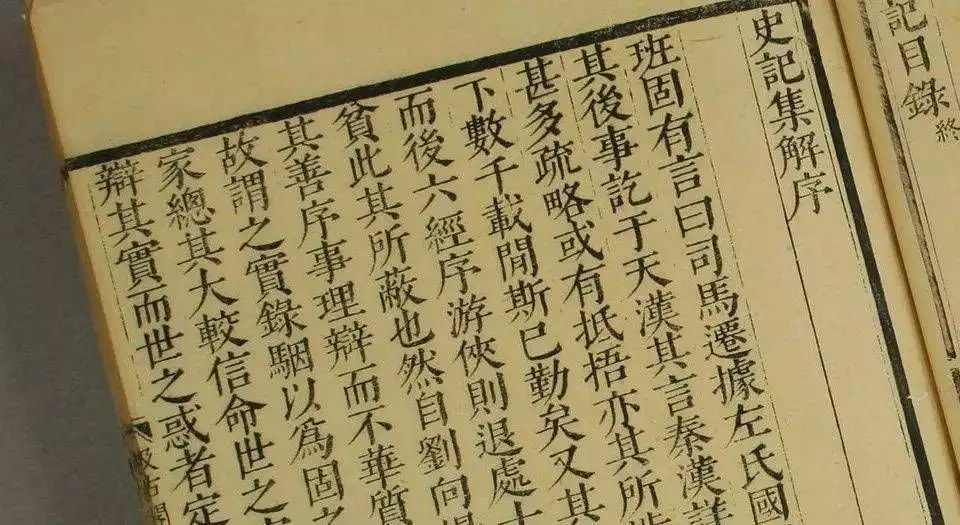 記目錄終
史記集解序
班固有言曰司馬遷據左氏國
其後事訖于天漢其言秦漢詳
甚多疏略或有抵捂亦其所
下數千載閒斯已勤矣又其
而後六經序游俠則退處
貧此其所蔽也然自劉向
其善序事理辯而不華質
故謂之實錄駰以爲固之
家總其大較信命世之
辯其實而世之惑者定
汲古